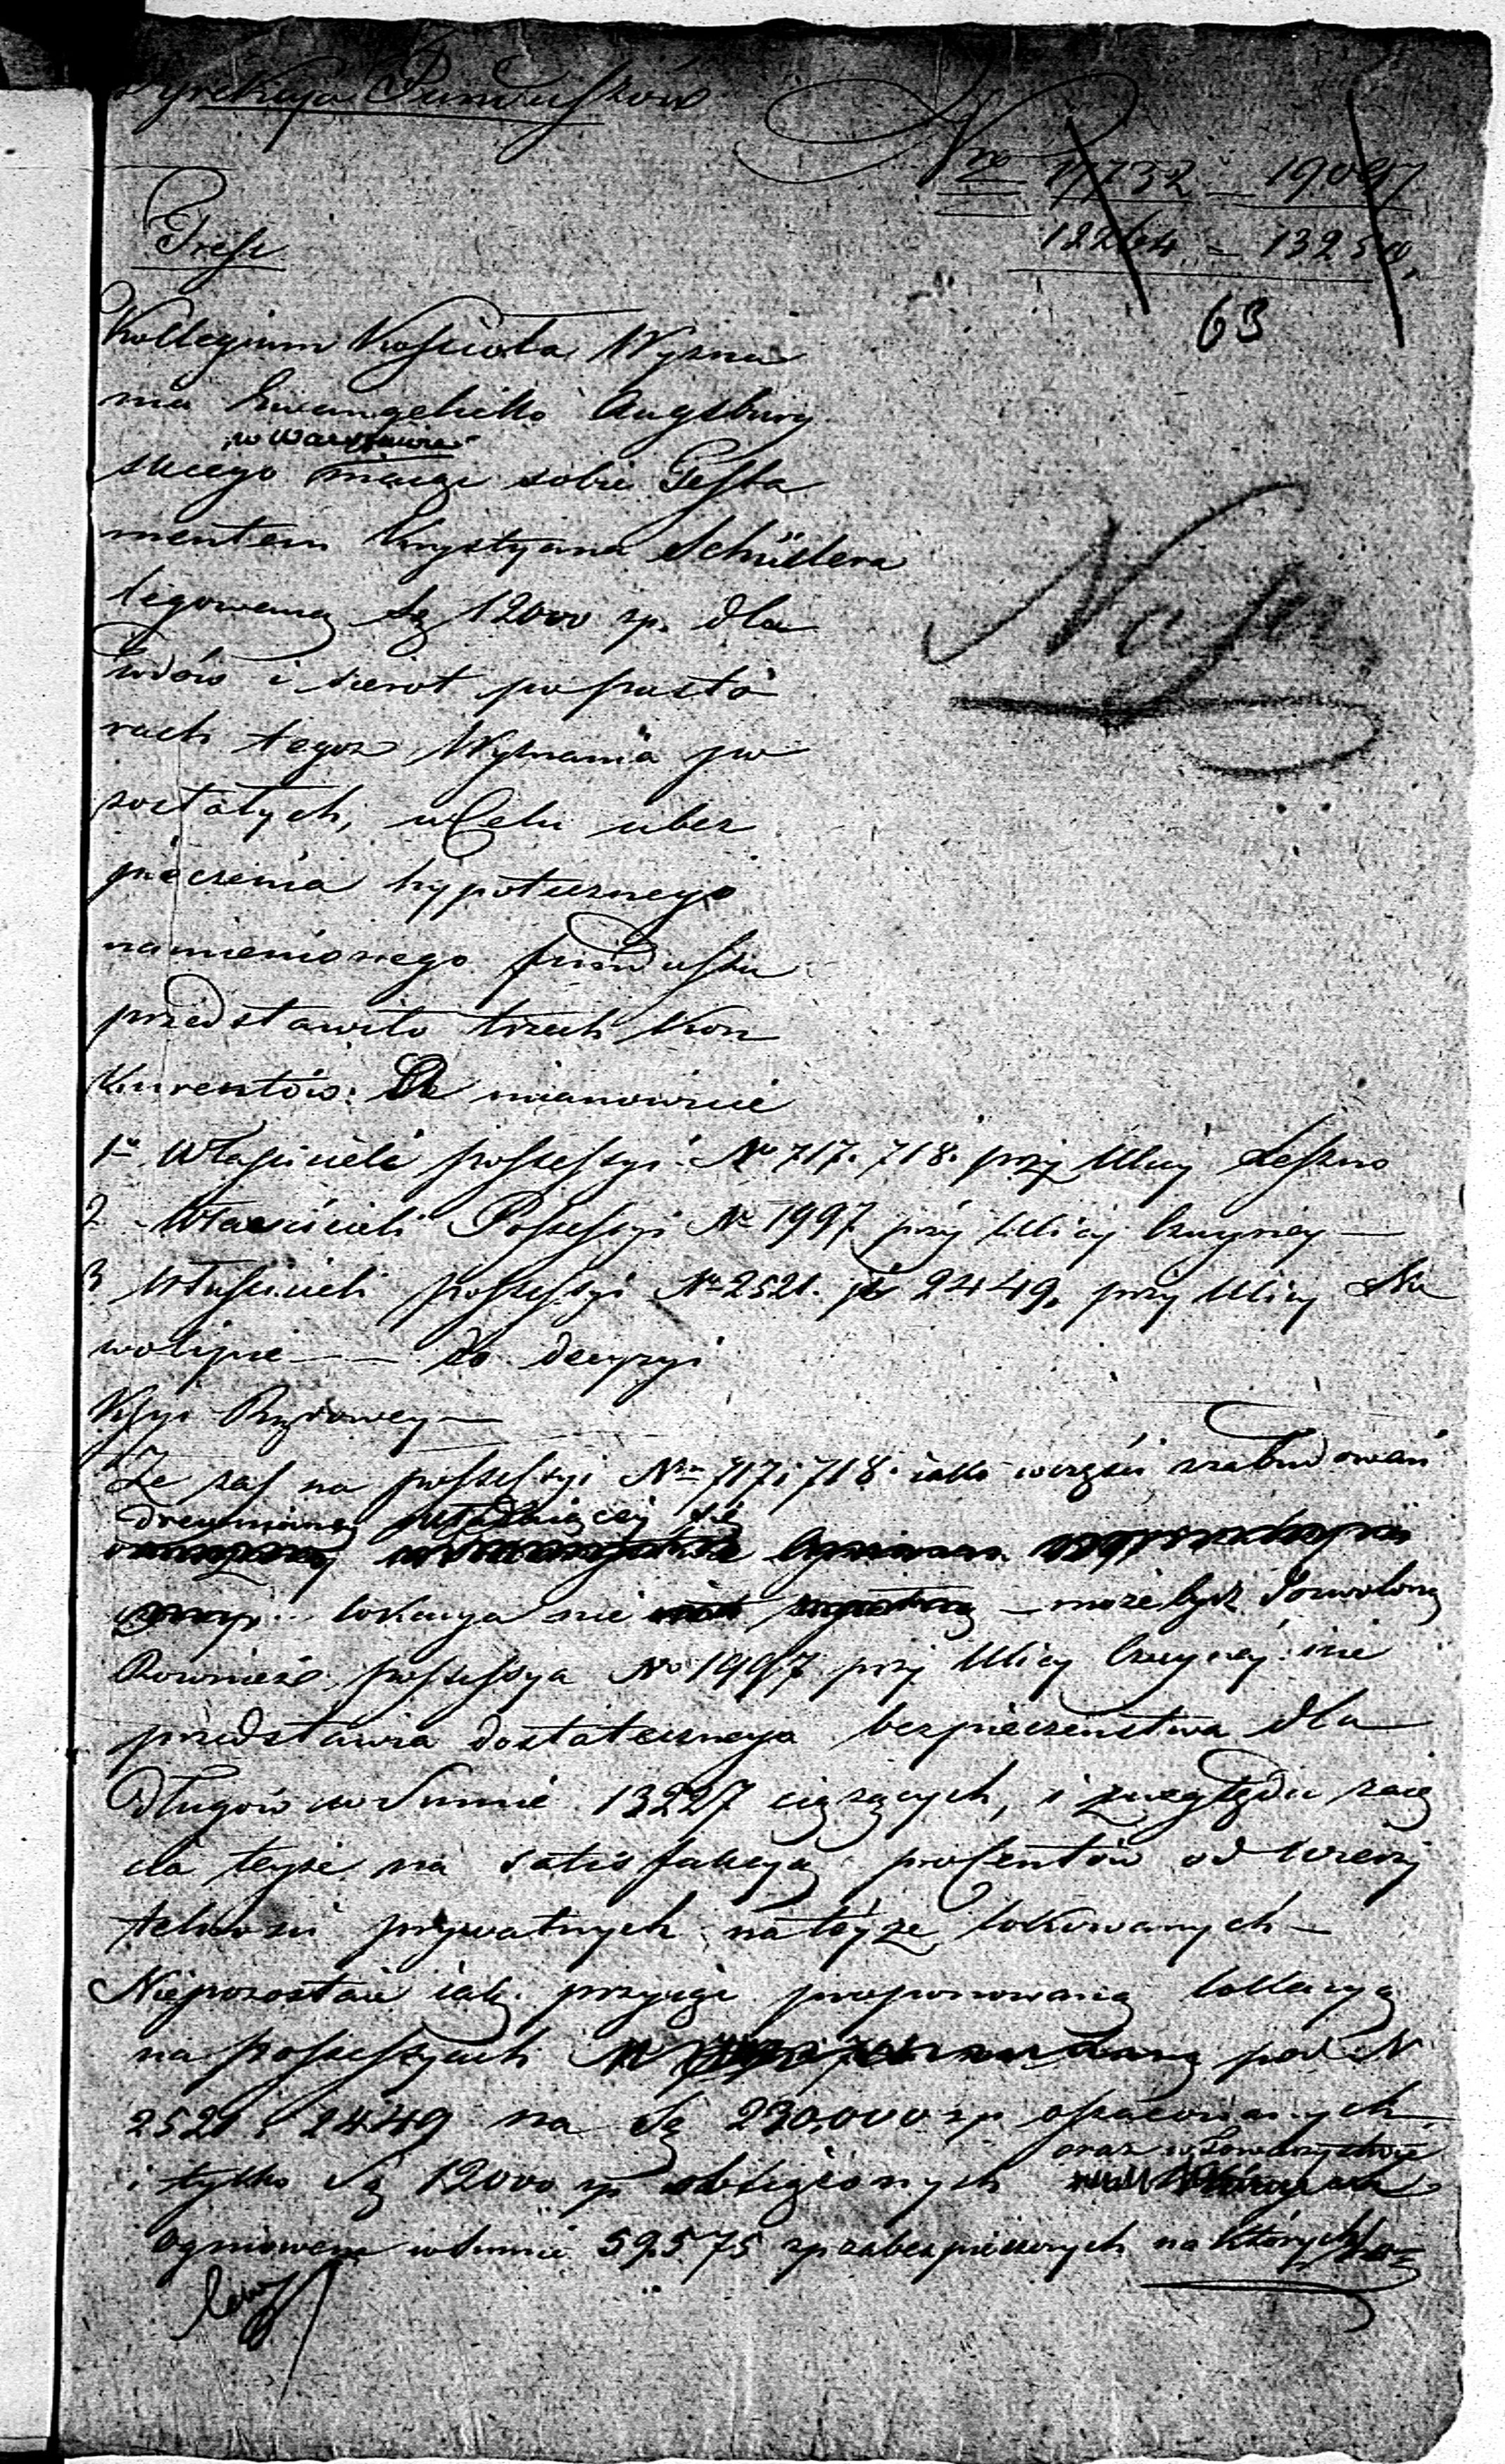 Dyrekcya Funduszów
Nro 17732 – 19097
12264. – 13250,
Tresc
63
Kollegium Koscioła Wyzna
nia Ewangelicko Augsburg
w Warszawie
skiego maiąc sobie Testa
mentem Krystyana Schüllera
legowaną Sę 12000 zp. dla
wdów i sierot po pasto
rach tegoz Wyznania po
zostałych, w Celu ubez
pieczenia hypotecznego
namienionego funduszu
przedstawiło trzech Kon
kurentów: mianowicie
1o Właścicieli possessyi No 717. 718. przy Ulicy Leszno
2 Właścicieli Possessyi No 1997 przy Ulicy
3 Właścicieli possessyi No 2521. 2449, przy Ulicy No
wolipie — do decyzyi
Kssyi Rządowey —
Ze zaś na possessyi Nro 717 i 718. iako w części zabudowań
drewnianey się
lokacya nie może bydź dozwoloną
Rownież possessya No 1997 przy Ulicy nie
przedstawia dostatecznego bezpieczeństwa dla
Długów w Summie 13227 ciążących, i z względu
na satisfakcyą procentów od wierzy
telności prywatnych na teyże lokowanych —
Niepozostaie iak przyiąć proponowaną lokacyą
na possessyach pod N
2521 i 2449 na Sę 230,000 zp oszacowanych
oraz w Towarzystwie
i tylko Sę 12000 zp obciążonych
Ogniowem w Summie 59,575 zp zabezpieczonych na których